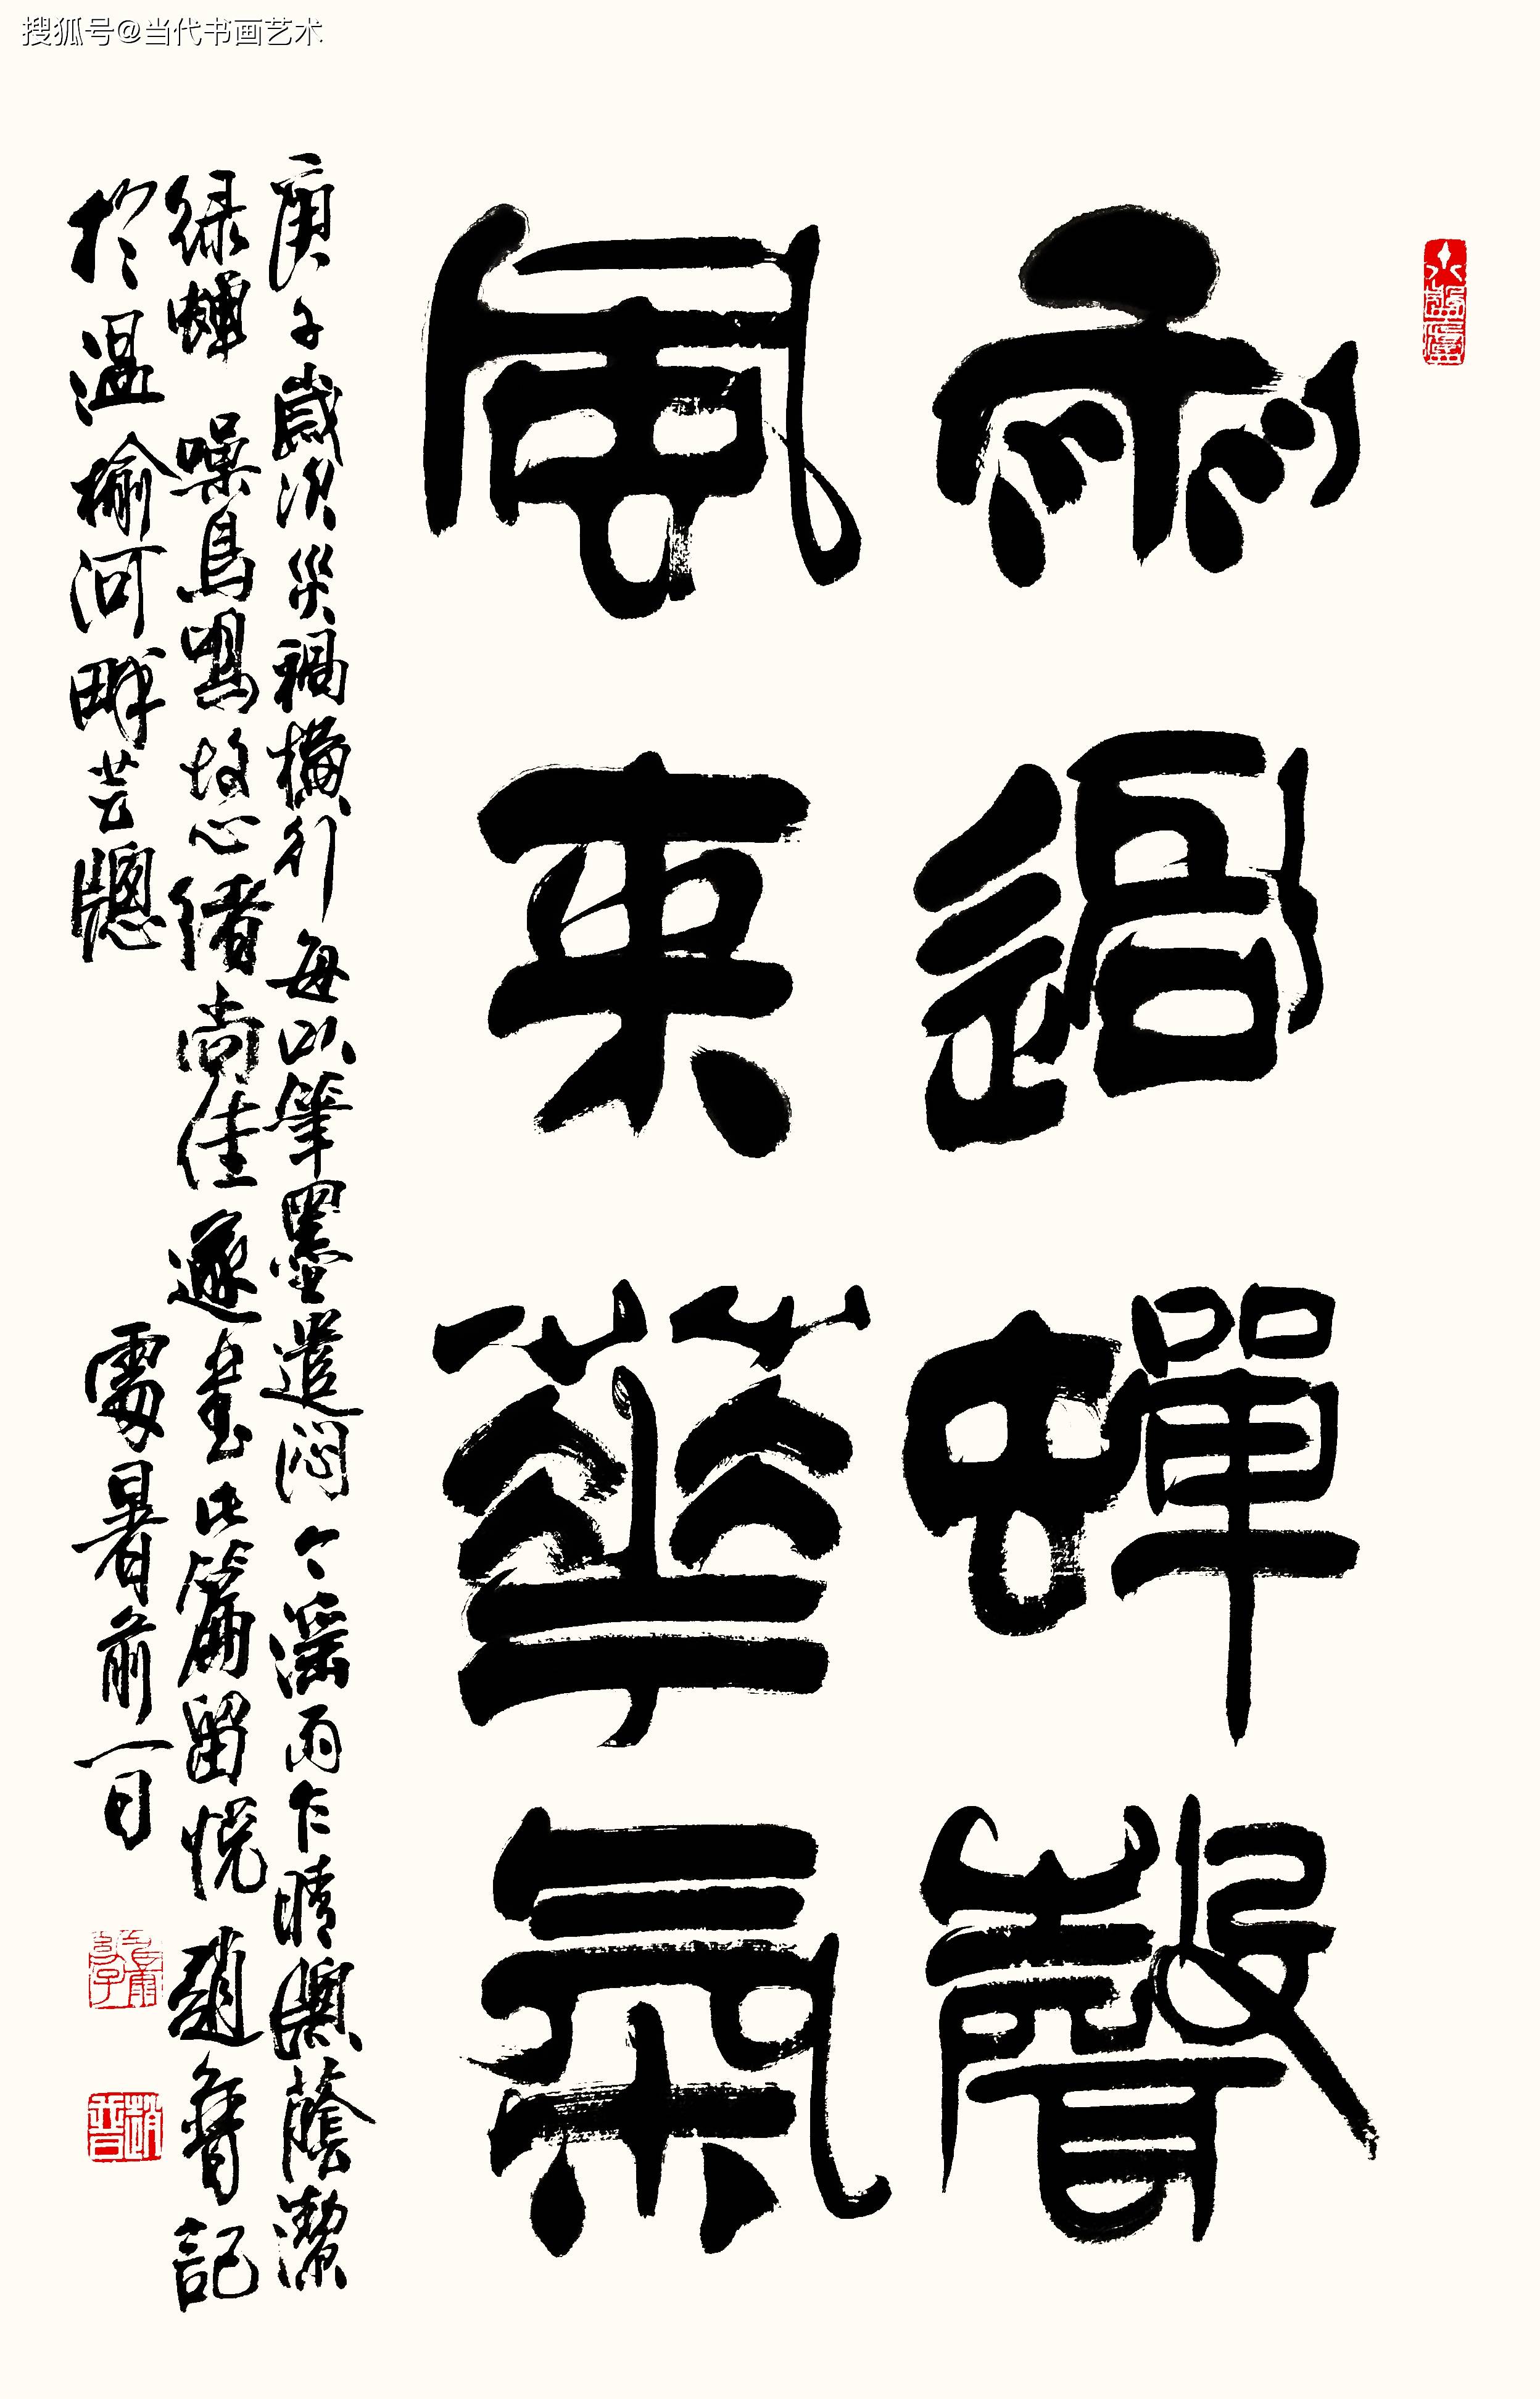 搜狐号@当代书画艺术
雨過蟬聲
風來華氣
庚子歲次災禍橫行每以筆墨遣悶今淫雨乍晴濃蔭潔
绿蟬噪鳥鳴故心緒尚佳遂書此篇留悦趙普記
於溫榆河畔芸牕處暑前一日
趙普